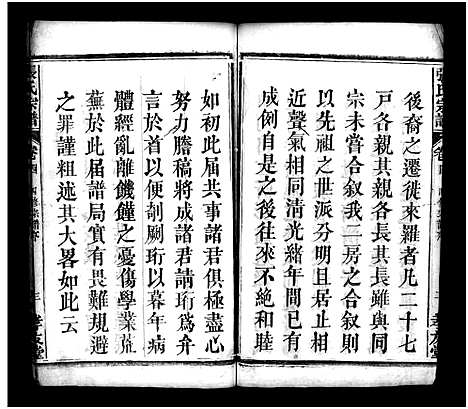 張氏宗譜
後裔之遷徙來羅者凡二十七
戸各親其親各長其長雖與同
宗未嘗合叙我二房合叙則
以先祖之世派分明且居止相
近聲氣相同清光緒年間已
成例自是之後往來不
如初此届共事諸君俱極盡心
努力謄稿將成諸君請珩爲弁
言於首以便剞劂珩以暮年病
體經亂離饑饉之憂傷學業荒
蕪於此届譜局實有畏難規避
之罪謹粗述其大畧如此云
張氏宗譜
卷四
三
孝友堂